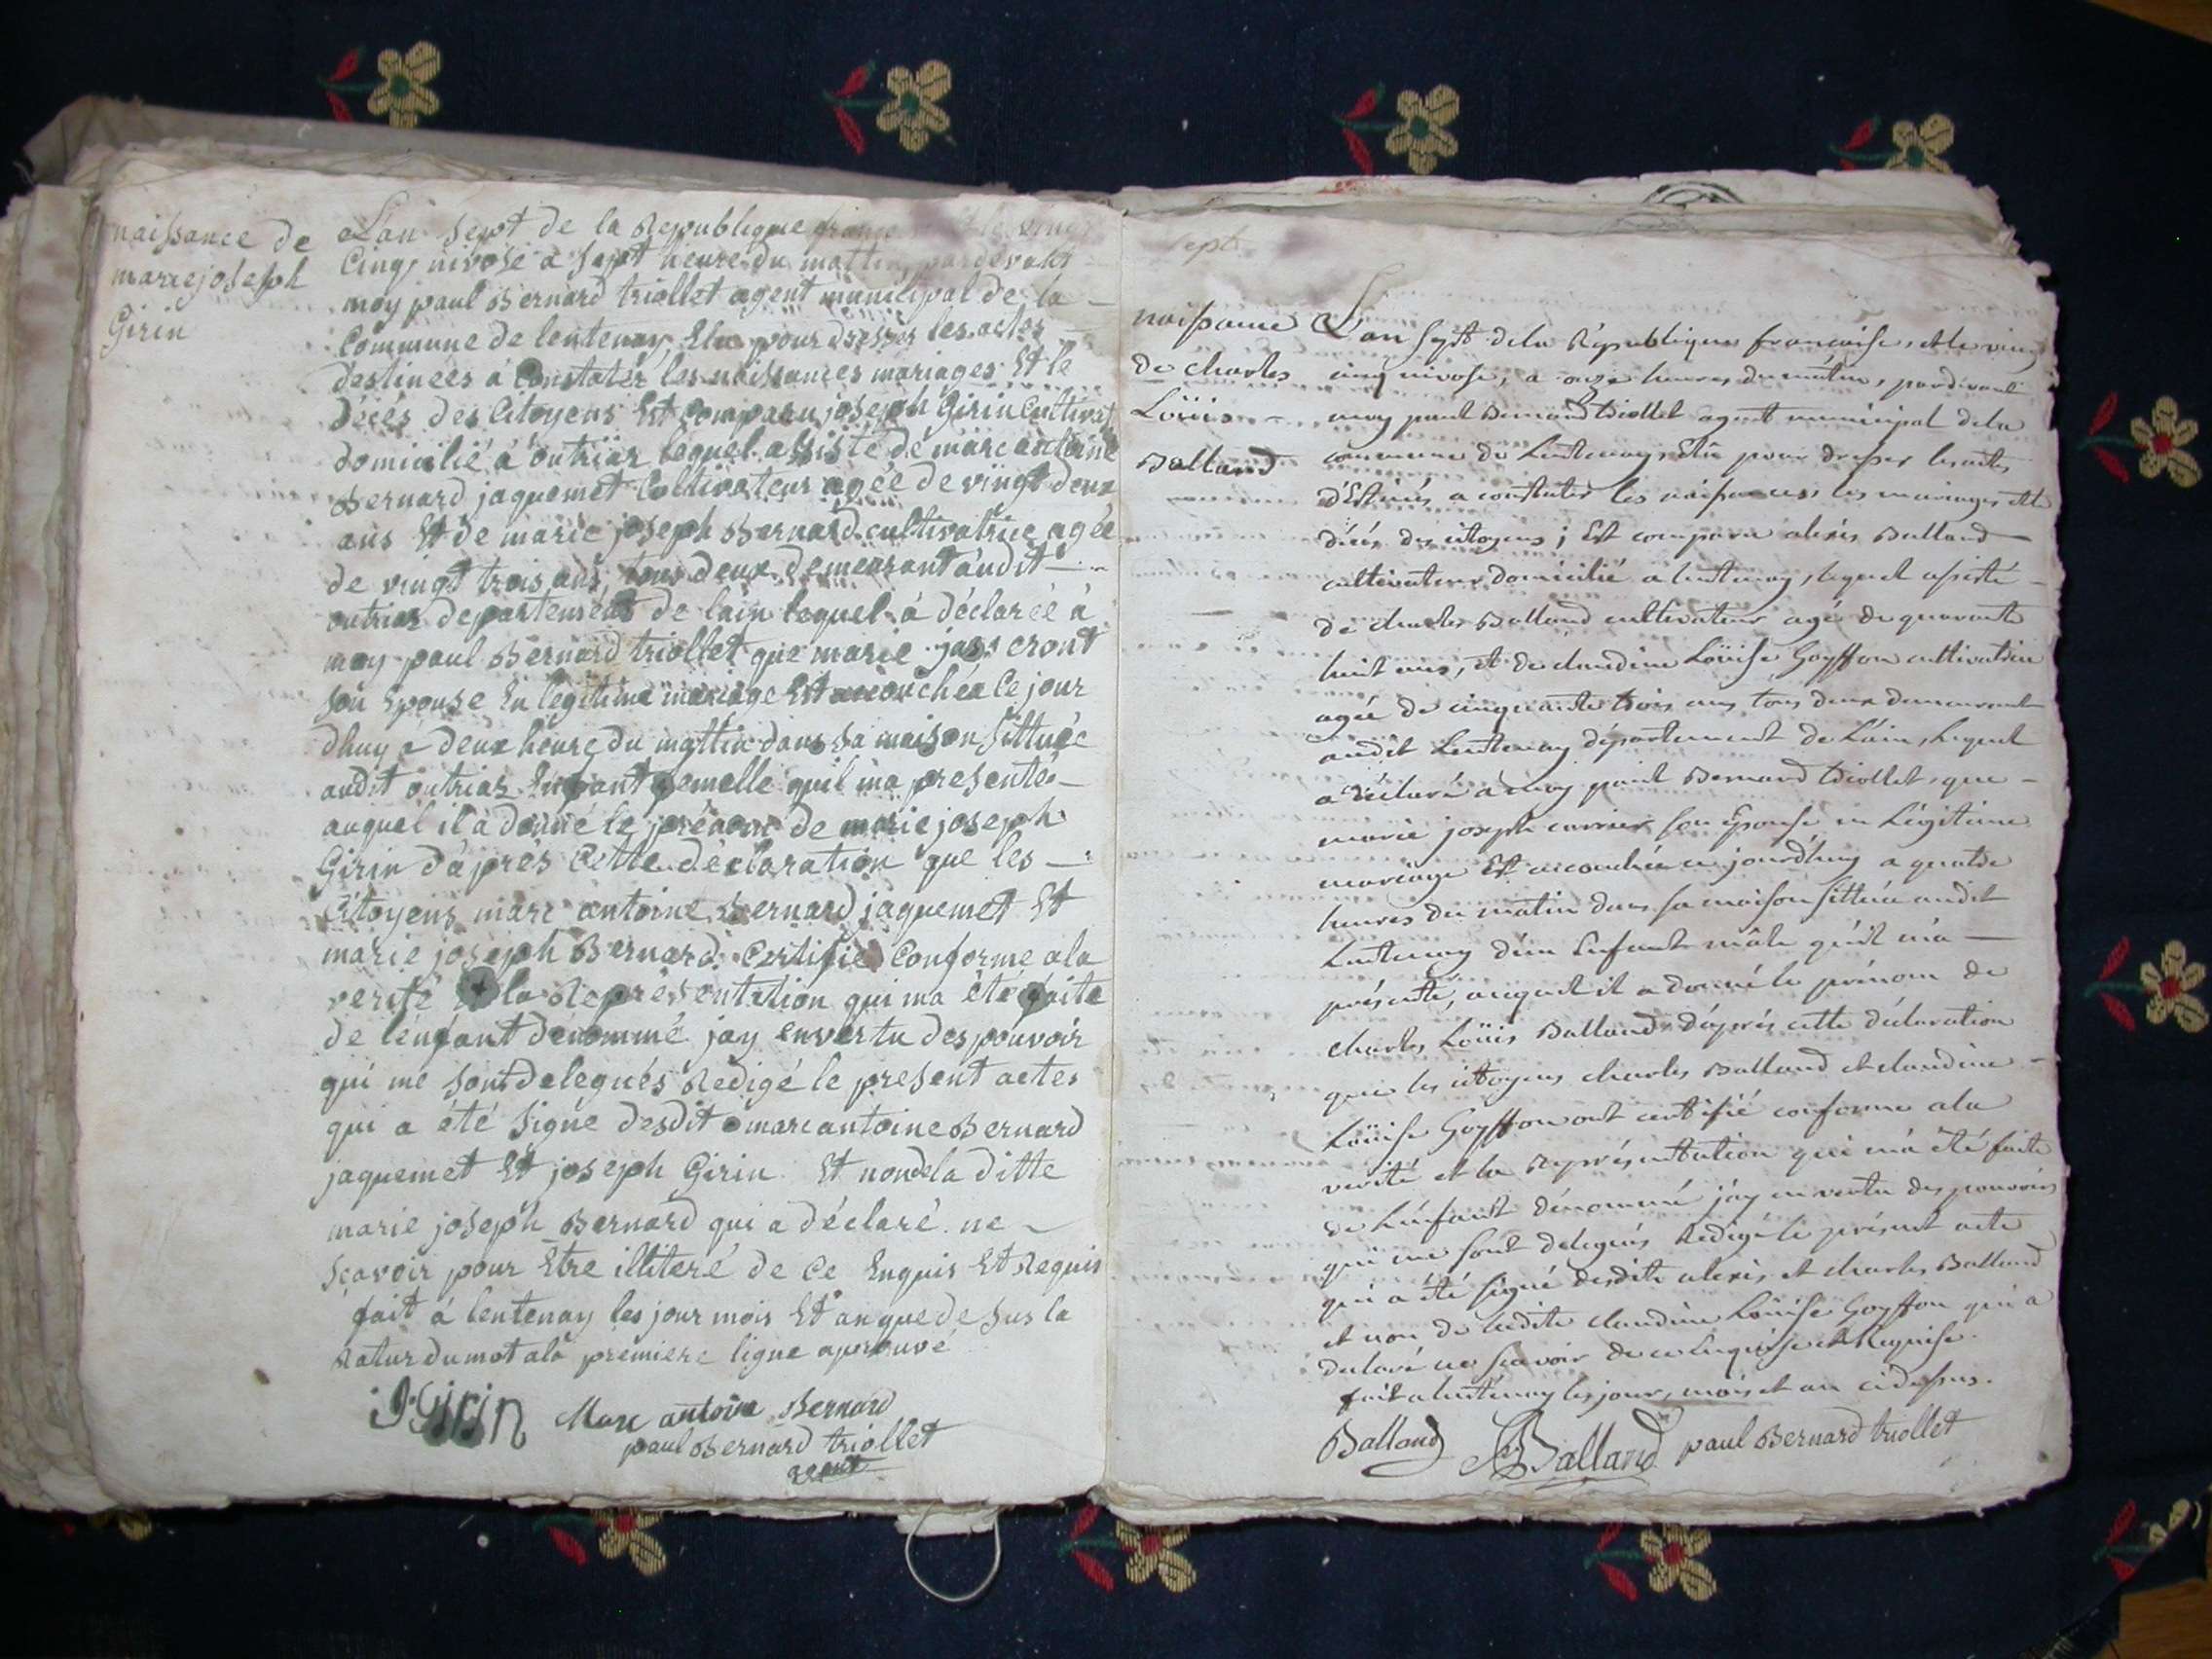 naissance de
marie joseph
Girin
Lan sept de la Republique
Cinq nivose a sept heure du mattin pardevant
moy paul Bernard triollet agent municipal de la
Commune de lentenay Elu pour dresser les actes
destinees á Constater les naissances mariages Et le
décés des Citoyens Est Comparu joseph Girin Cultivat
domicilié á outriaz lequel assisté de marc antoine
Bernard jaquemet Cultivateur agée de vingt deux
ans Et de marie joseph Bernard cultivatrice agée
de vingt trois ans, tous deux demeurant áudit
outriaz departement de lain lequel á déclarée á
moy paul Bernard triollet que marie
son Epouse En legitime mariage Est accouchée Ce jour
dhuy á deux heure du mattin dans sa maison sittuée
audit outriaz Enfant femelle quil ma presentée
auquel il a donné le prénom de marie joseph
Girin dáprés Cette déclaration que les
Citoyens marc antoine Bernard jaquemet Et
marie joseph Bernard Certifie Conforme a la
verité Et la Representation qui ma été faite
de lenfant denommé jay envertu des pouvoir
qui me sont delegués Redigé le present actes
qui a été signé desdit marc antoine Bernard
jaquemet Et joseph Girin Et non de la ditte
marie joseph Bernard qui a déclaré ne
sçavoir pour Etre illiteré de Ce Enquis Et Requis
fait á lentenay les jour mois Et an que desus la
Ratur du mot a la premiere ligne aprouvé
J Girin Marc antoine Bernard
paul Bernard triollet
agent
sept
naissance
de charles
Loüis
Balland
L'an sept de la Républiques françoise, et le vingt
cinq nivose, a onze heures du matin, pardevant
moy paul Bernard triollet agent municipal de la
commune de Lentenay, Elû pour dresser les actes
d'Estinés a constater les naissances, les mariages, et le
décés des citoyens; Est comparu alexis Balland
cultivateur domicilié a lentenay, lequel assisté
de charles Balland cultivateur agé de quarante
huit ans, et de claudine Loüise Goyffon cultivatrice
agée de cinquante trois ans, tous deux demeurant
audit Lentenay département de L'ain, lequel
a déclaré a moy paul Bernard triollet, que
marie joseph carrier son Epouse en Légitime
mariage Est accouchée ce jourd'huy a quatre
heures du matin dans sa maison sittuée audit
Lentenay d'un Enfant mâle qu'il m'a
présenté, auquel il a donné le prénom de
charles Loüis Balland, d'áprés cette déclaration
que les citoyens charles Balland et claudine
Loüise Goyffon ont certifié conforme a la
verité et la Représentation qui m'a été faite
de L'énfant dénommé j'ay en vertu des pouvoirs
qui me sont delegués Redigé le présent acte
qui a été signé desdits alexis et charles Balland
et non de ladite claudine Loüise Goyffon qui a
declaré ne sçavoir de ce Enquise et Requise.
fait a lentenay les jour, mois et an cidessus.
Balland Balland paul Bernard triollet